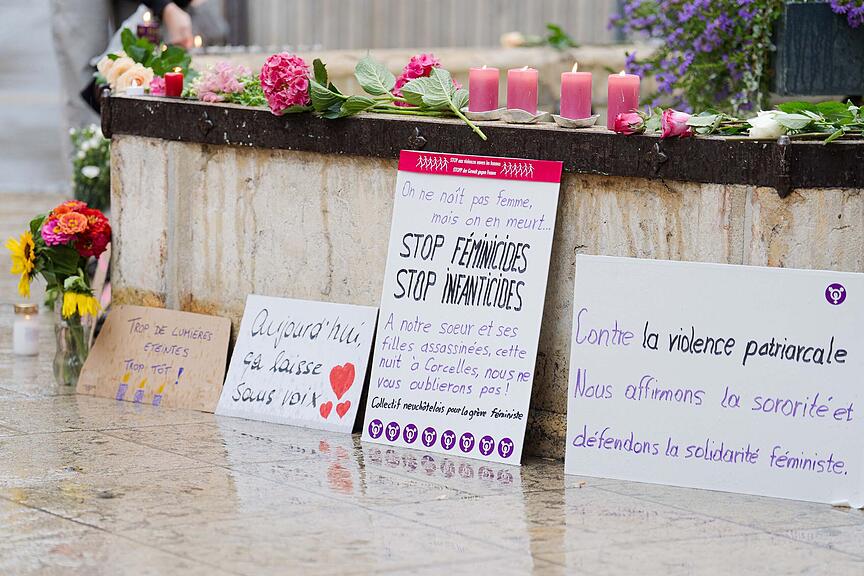 TROP DE LUMIÈRES
ÉTEINTES
TROP TÔT !
Aujourd'hui,
ça laisse
sans voix
STOP aux violences envers les femmes
STOPP der Gewalt gegen Frauen
On ne naît pas femme,
mais on en meurt...
STOP FÉMINICIDES
STOP INFANTICIDES
A notre soeur et ses
filles assassinées, cette
nuit à Corcelles, nous ne
vous oublierons pas !
Collectif neuchâtelois pour la grève féministe
Contre la violence patriarcale
Nous affirmons la sororité et
défendons la solidarité féministe.